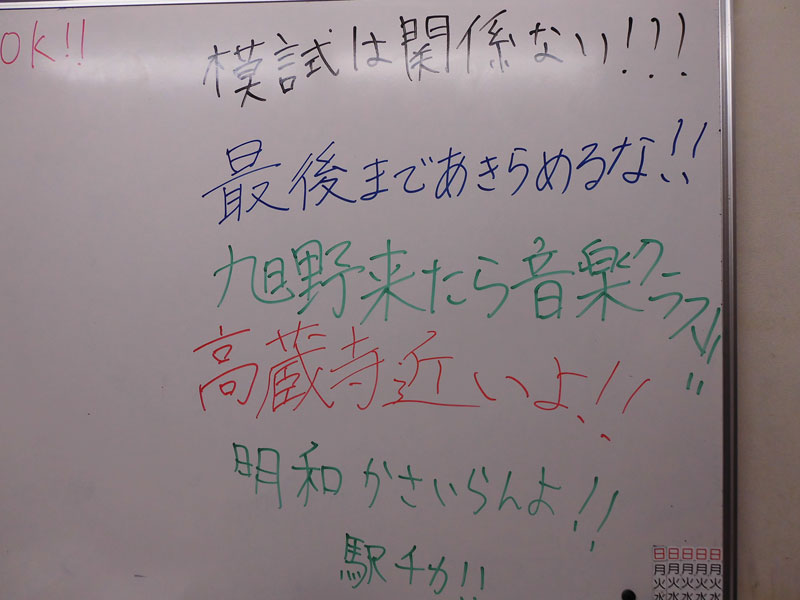 OK!!
模試は関係ない!!!
最後まであきらめるな!!
旭野来たら音楽クラブ!!
高蔵寺近いよ!!
明和かさいらんよ!!
駅チカ!!
日日日日日
月月月月月
火火火火火
水水水水水